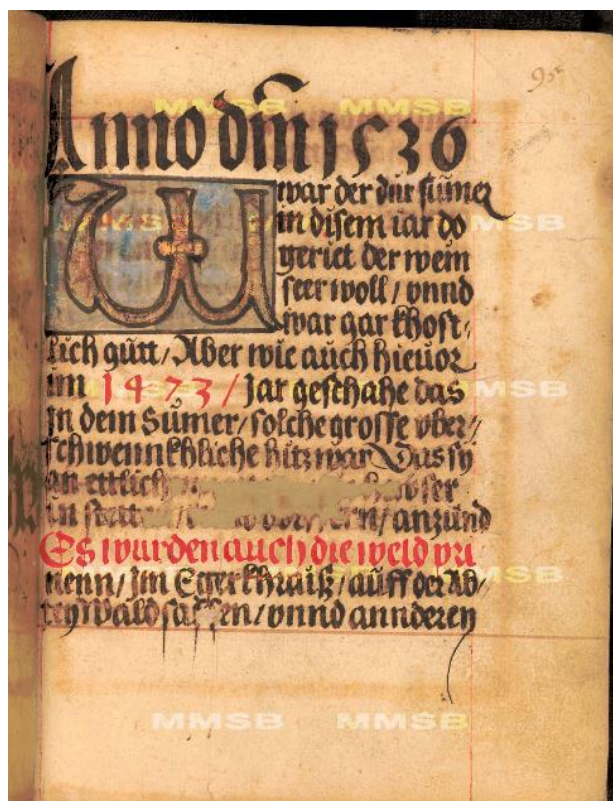 Anno dm̄ 1536
W war der dür sumer
in disem iar do
geriet der wein
seer woll / vnnd
war gar khost,
lich gůtt / Aber wie auch hieuor
im 1473 / Jar geschahe das
In dem Sumer / solche grosse vber//
schwennkhliche hitz war Das sy
an ettlich
in anzünd
Es wurden auch die weld pri
nenn / Im Eger khraiß / auff der Ab,
tey Waldsassen / vnnd annderen
MMSB MMSB
MMSB MMSB
MMSB MMSB
MMSB MMSB
MMSB MMSB